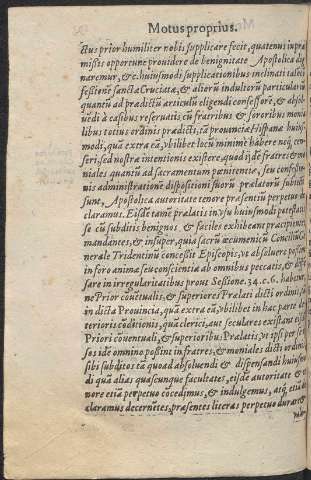 Motus proprius.
ctus prior humiliter nobis supplicare fecit, quatenus in præ
missis opportune providere de benignitate Apostolica dig
naremur, &c. huiusmodi supplicationibus inclinati
festione sanctæ Cruciatæ, & aliorū indultorum particularium
quantū ad prædictū articulū eligendi confessorē, & absol
vēdi à casibus reservatis cū fratribus & sororibus monia
libus totius ordinis prædicti, tā provincia Hispana huius
modi, quā extra eā, vbilibet locū minime habere
seri, sed nostræ intentionis existere, quod ijdē fratres & mo
niales quantū ad sacramentum pœnitentiæ, seu confessio
nis administrationē dispositioni suorū prælatorū subiecti
sunt, Apostolica autoritate tenore præsentiū perpetuo de
claramus. Eisdē tamē prælatis in vsu huiusmodi potestatis
se cū subditis benignos & faciles exhibeant præcipientes
mandantes, & insuper, quia sacrū œcumenicū Conciliū Ge
nerale Tridentinū concessit Episcopis, vt absolvere possint
in foro animæ seu conscientiæ ab omnibus peccatis, & dispē
sare in irregularitatibus prout Sessione. 24. c. 6. habetur,
ne Prior cōuētualis, & superiores Prælati dicti ordinis, sive
in dicta Provincia, quā extra eā, vbilibet in hac parte de
terioris cōditionis, quā clerici, aut seculares existant eisdē
Priori conventuali, & superioribus Prælatis, vt ipsi per se
sos ide omnino possint in fratres, & moniales dicti ordinis
sibi subditos tā quoad absolvendi & dispensandi huiusmo
di quā alias quascunque facultates, eisdē autoritate & te
nore etiā perpetuo cōcedimus, & indulgemus, atq, etiā de
claramus decernētes, præsentes literas perpetuo durare &